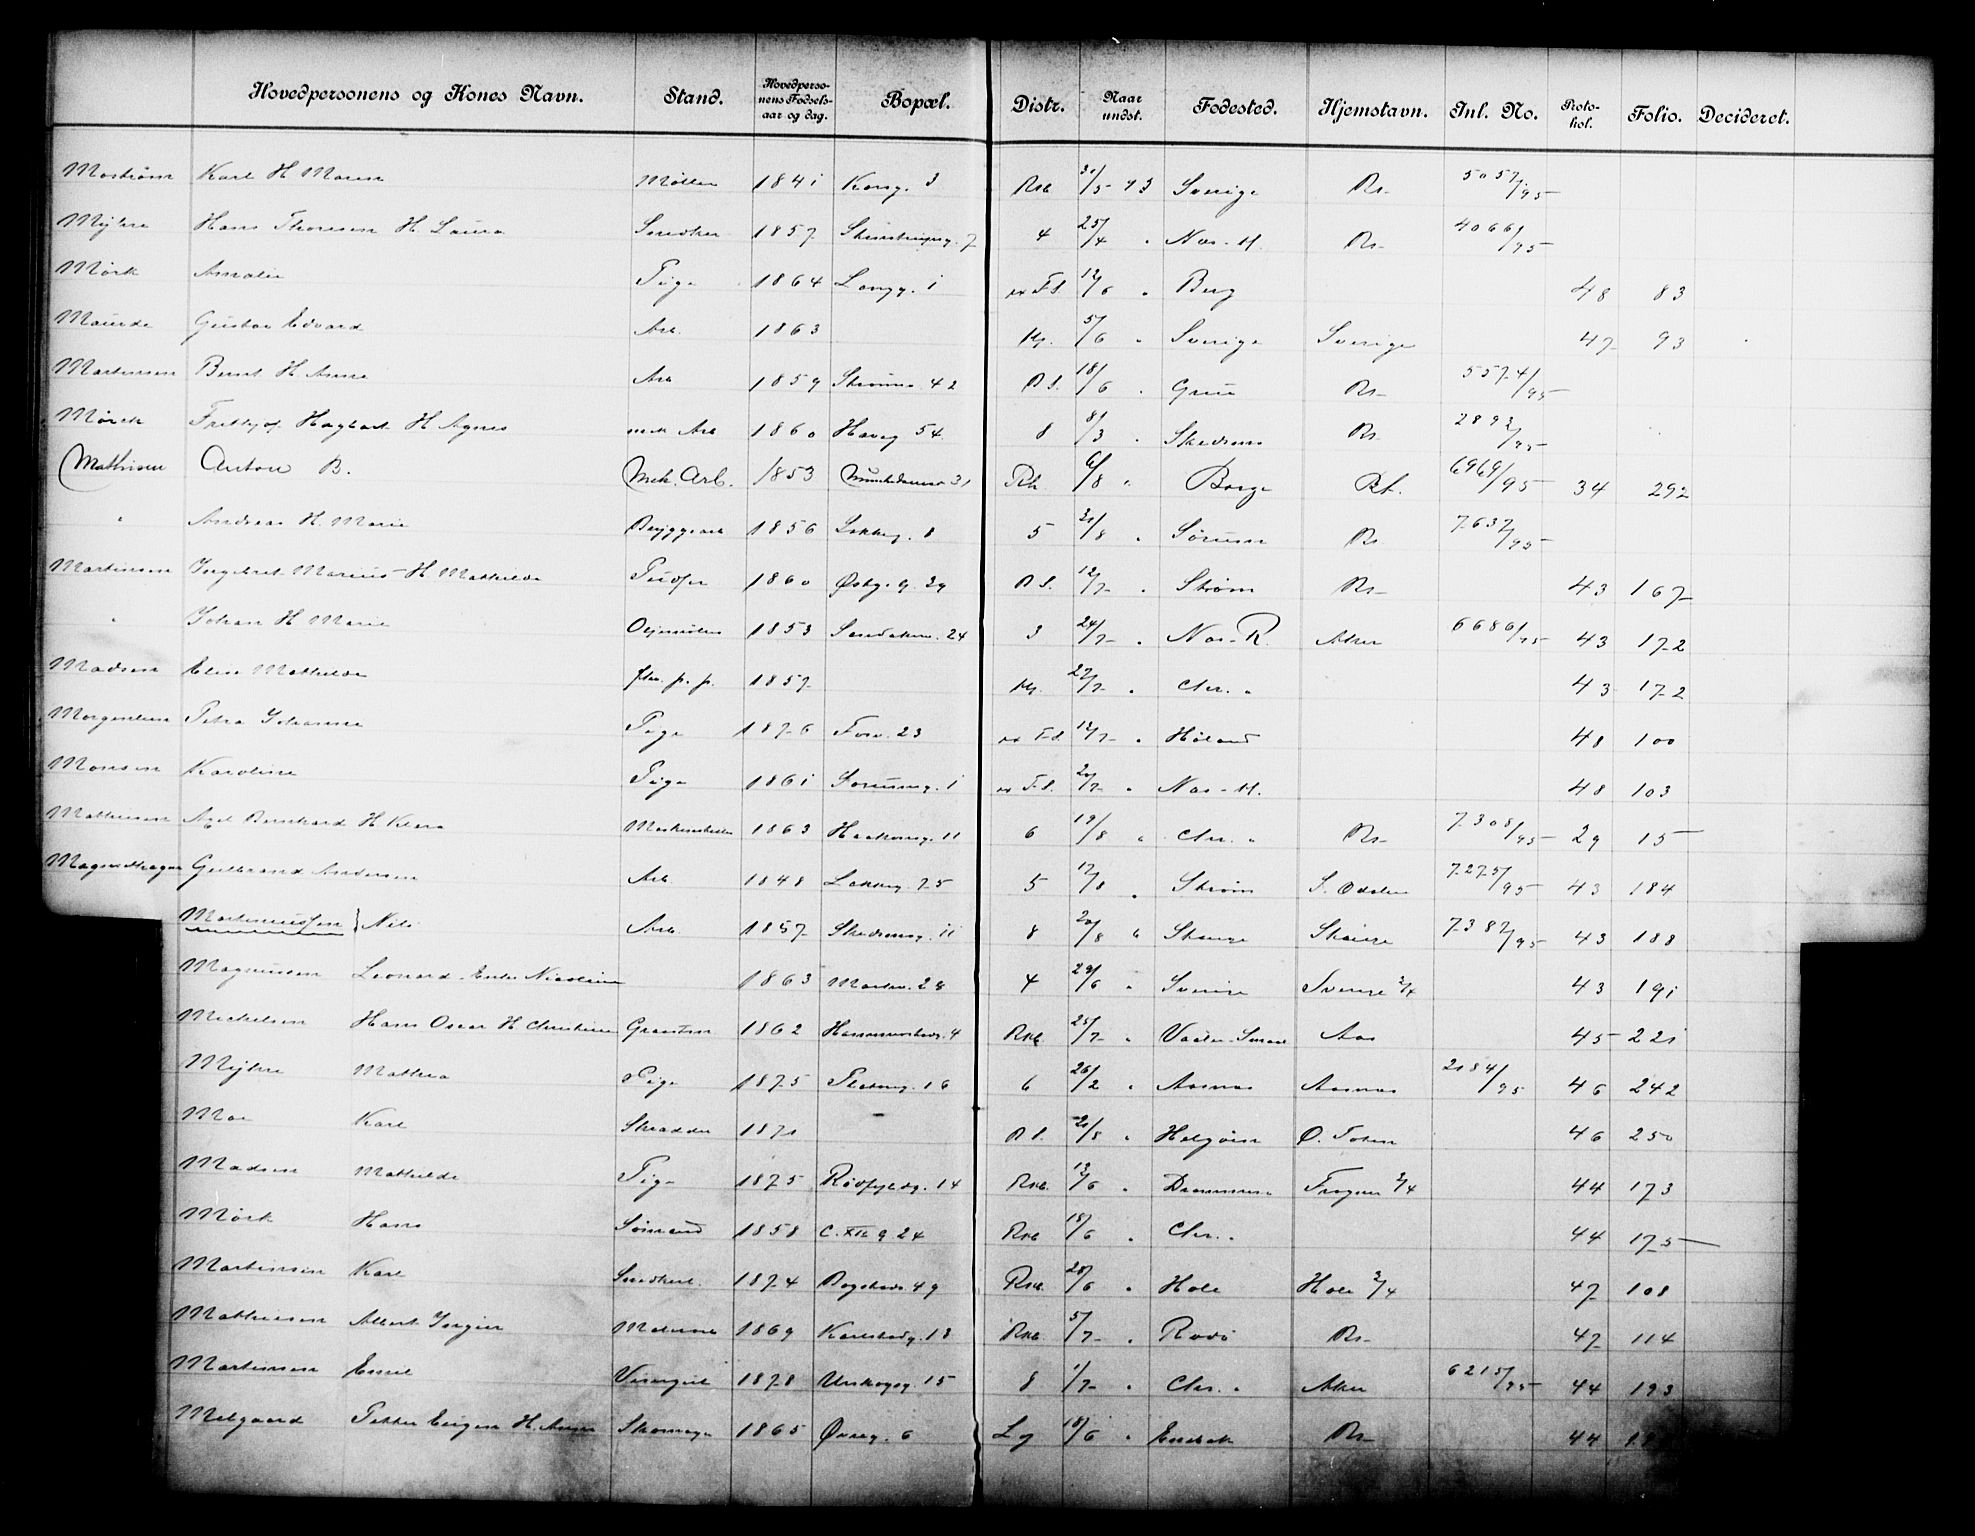 Hovedpersonens og Kones Navn. Stand. Hovedperso-nens Fødsels-aar og dag. Bopæl. Distr. Naar undst. Fødested. Hjemstavn. Inl. No. Proto-kol. Folio. Decideret.
Karl H Maren Møller 1841 Kong. 3 Rst 30/5 93 Sverige Rs 5057/95
Myhre Hans Thoresen H Laura Snedker 1857 7 4 25/4 " Nas-H. Rs 4066/95
Mørk Amalie Pige 1864 Langg. 1 12/6 " Berg 48 83
Gustav Edvard Arb. 1863 5/6 " Sverige Sverige 47 93
Martinsen Bernt H Anna Arb 1859 42 R S. 18/6 " Grue Rs 5574/95
Mørck Fritkjof Hagbart H Agnes mek Arb 1860 Haveg 54 8 8/3 " Skedsmo Rs 2892/95
Mathisen Anton B. Mek. Arb. 1853 31 Rk 6/8 " Borge Rk. 6969/95 34 292
" Andreas H. Marie Bryggearb 1856 Lakkeg. 8 5 21/8 " Sørum Rs 7637/95
Martinsen Ingebret Marius H Mathilde 1860 Østg. g. 29 R S. 12/7 " Strøm Rs 43 167
" Johan H Marie 1853 Sandakerv. 24 3 24/7 " Nas-R. Aker 6686/95 43 172
Madsen Elise Mathilde fhv. p. p. 1857 27/7 " Chr. " 43 172
Morgenlien Petra Johanna Pige 1876 Fossv. 23 12/7 " Høland 48 100
Monsen Karoline Pige 1861 Sorumg. 1 20/7 " Nas-H. 48 103
Mathisen Axel Bernhard H Klara 1863 Haakonsg. 11 6 19/8 " Chr. " Rs 7308/95 29 15
Gulbrand Andersen Arb 1848 Lakkeg. 75 5 17/8 " Strøm S. Odalen 7275/95 43 184
Martinussen } Nils Arb 1857 Skedsmog. 11 8 20/8 " Stange Stange 7387/95 43 188
Magnussen Leonard - Enke Nicoline 1863 28 4 29/6 " Sverige Sverige 2/4 43 191
Mickelsen Hans Oscar H Christiane 1862 4 Rst 25/7 " Vaaler-Smaal Aas 45 221
Myhre Mathea Pige 1875 16 6 26/2 " Aasnes Aasnes 2184/95 46 242
Moe Karl Skrædder 1871 R S. 21/8 " Helgøien Ø. Toten 46 250
Madsen Mathilde Pige 1875 Rødfyldg. 14 Rst. 13/6 " Drammen Frogner 2/4 44 173
Mørk Hans Sømand 1858 C. XII g 24 Rst 18/6 " Chr. " 44 175
Martinsen Karl Snedkerl. 1874 Bogstadv. 49 Rst. 28/6 " Hole Hole 2/4 47 108
Mathisen Albert Ingier 1869 Karlstadg. 18 Rst 5/7 " Rødø Rs 47 114
Martinsen Emil Visergut 1878 Urskogg. 15 8 1/7 " Chr. " Aker 6215/95 44 193
Melgaard Petter Eugen H. Anna Skomag. 1865 6 L g 18/6 " Enebak Rs 44